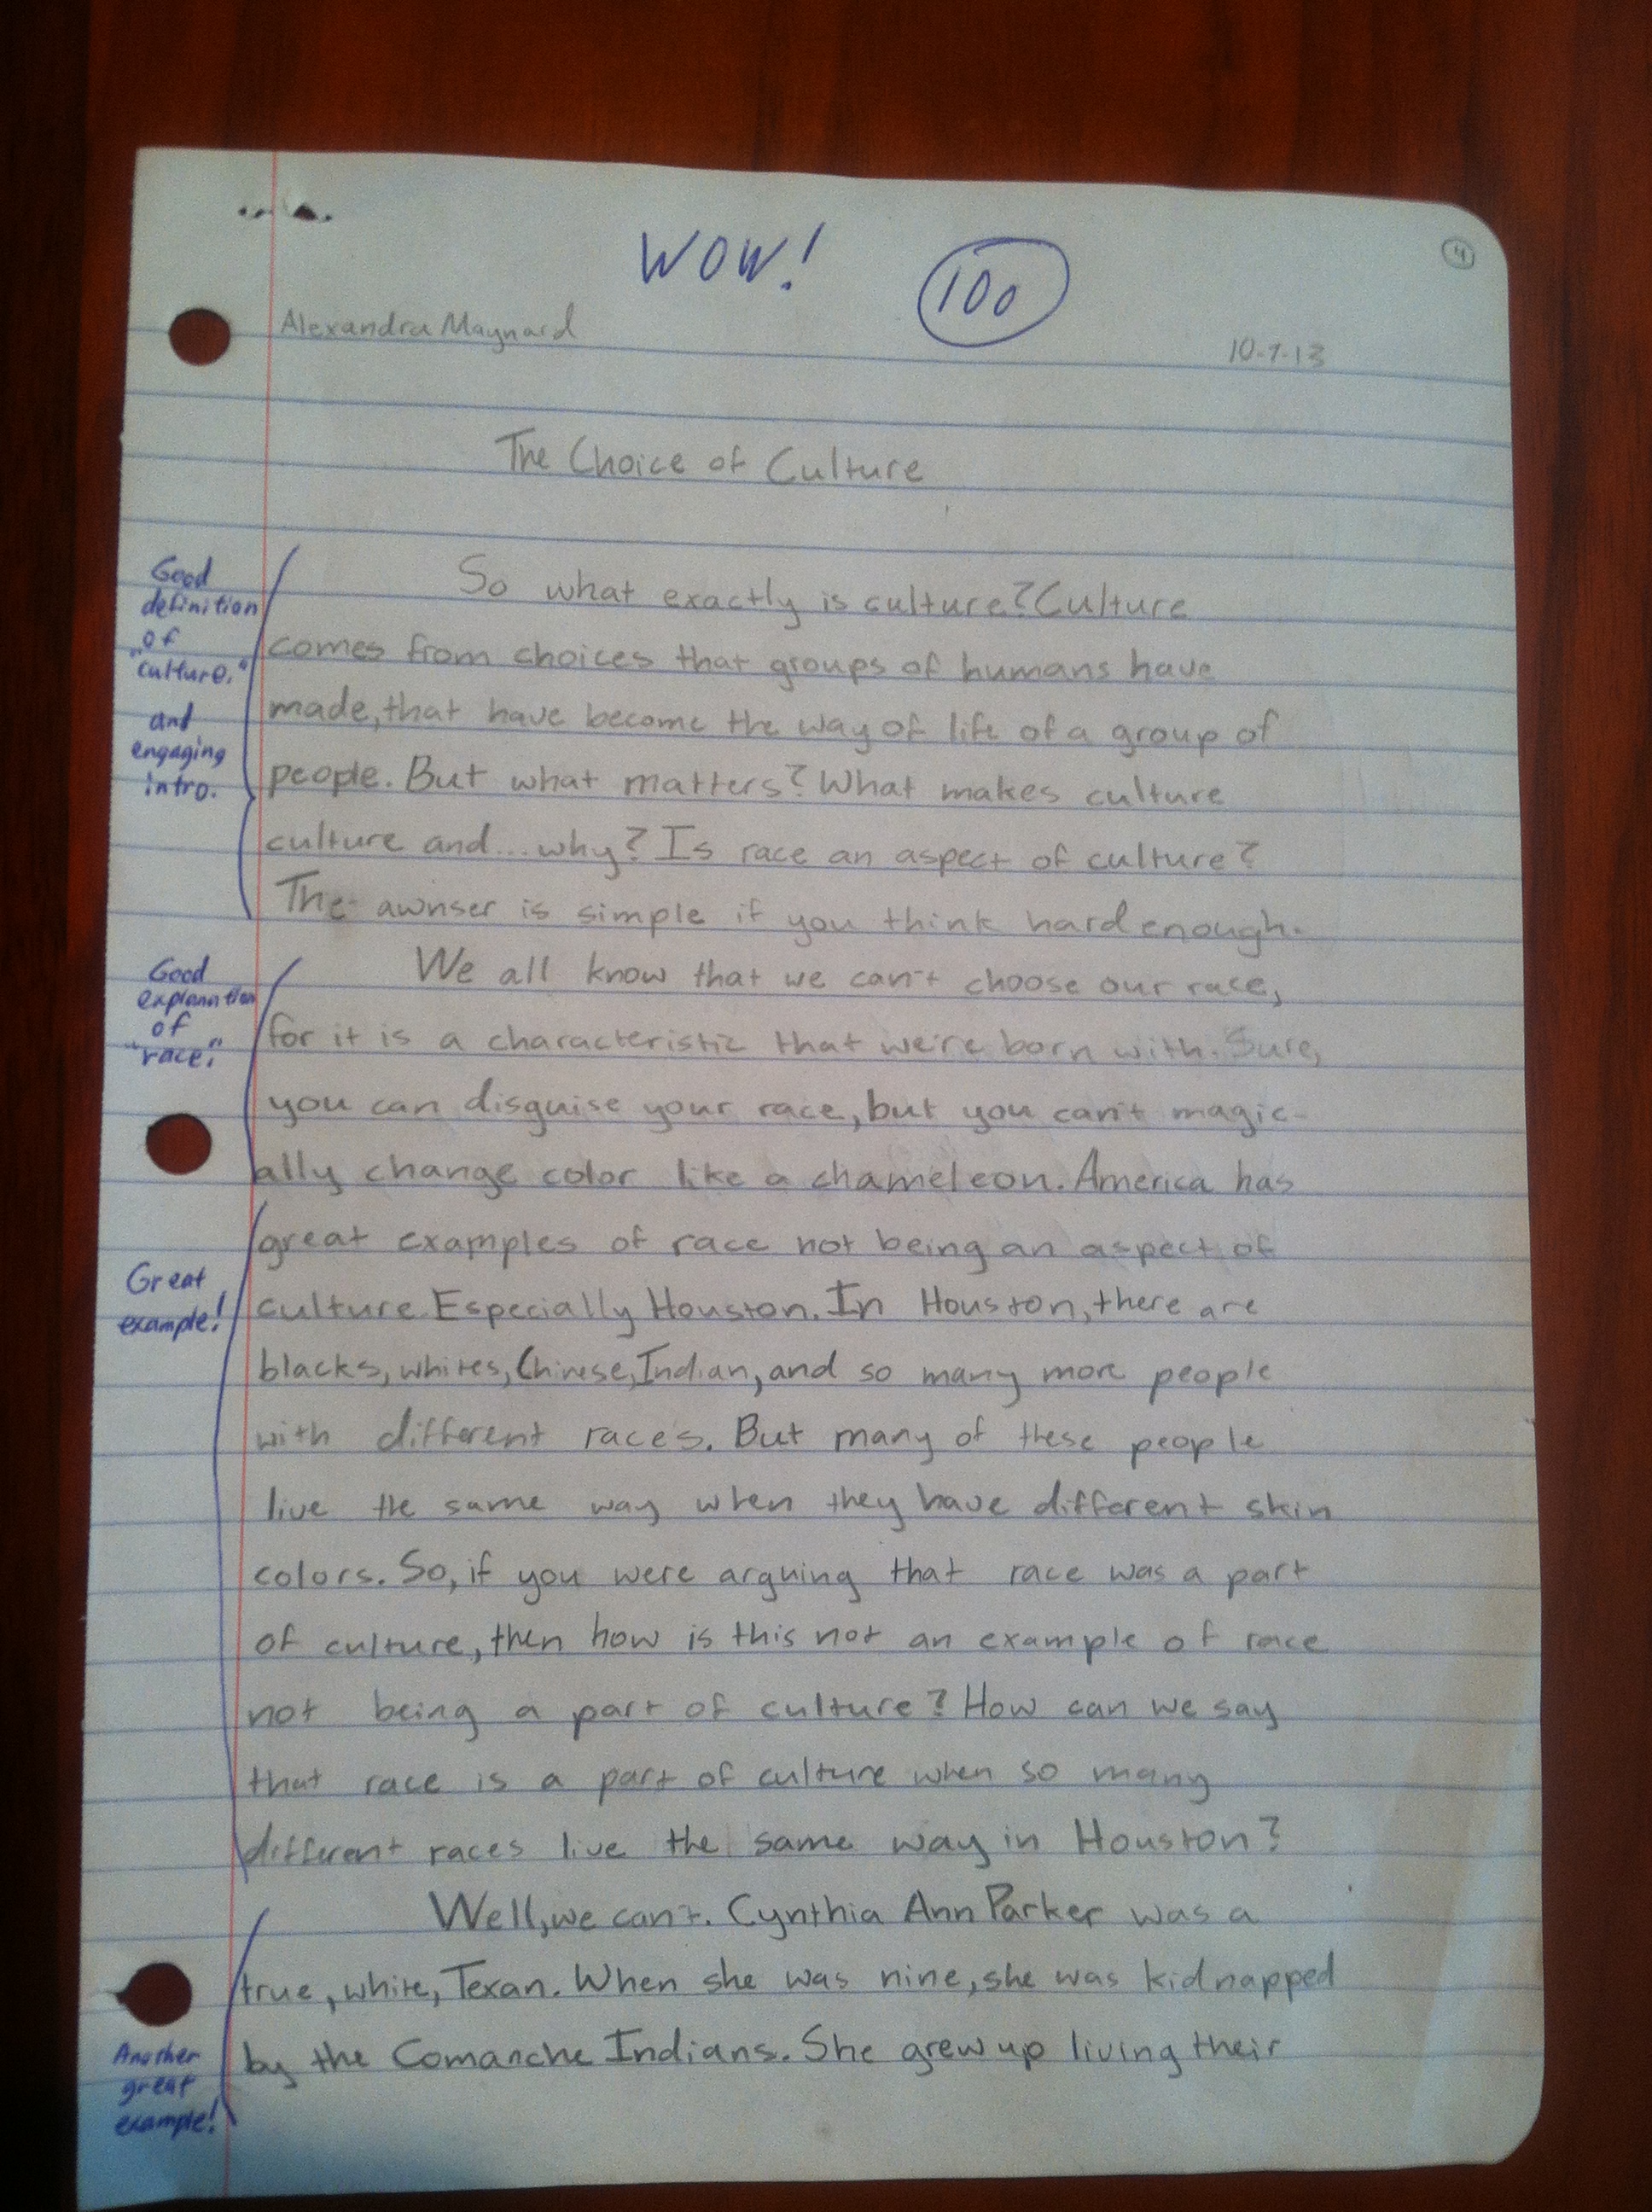 WOW!
100
4
Alexandra Maynard
10-7-13
The Choice of Culture
Good
definition
of
"culture."
and
engaging
intro.
So what exactly is culture? Culture
comes from choices that groups of humans have
made, that have become the way of life of a group of
people. But what matters? What makes culture
culture and...why? Is race an aspect of culture?
The awnser is simple if you think hard enough.
Good
explanation
of
"race."
We all know that we can't choose our race,
for it is a characteristic that we're born with. Sure,
you can disguise your race, but you can't magic-
ally change color like a chameleon. America has
Great
example!
great examples of race not being an aspect of
culture. Especially Houston. In Houston, there are
blacks, whites, Chinese, Indian, and so many more people
with different races. But many of these people
live the same way when they have different skin
colors. So, if you were arguing that race was a part
of culture, then how is this not an example of race
not being a part of culture? How can we say
that race is a part of culture when so many
different races live the same way in Houston?
Another
great
example!
Well, we can't. Cynthia Ann Parker was a
true, white, Texan. When she was nine, she was kidnapped
by the Comanche Indians. She grew up living their